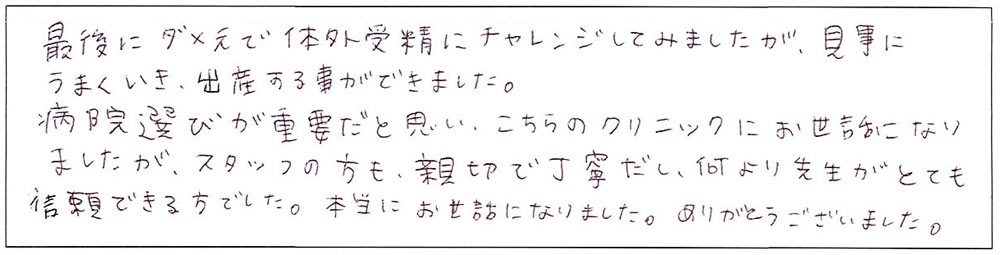 最後にダメ元で体外受精にチャレンジしてみましたが、見事に
うまくいき、出産する事ができました。
病院選びが重要だと思い、こちらのクリニックにお世話になり
ましたが、スタッフの方も、親切で丁寧だし、何より先生がとても
信頼できる方でした。本当にお世話になりました。ありがとうございました。